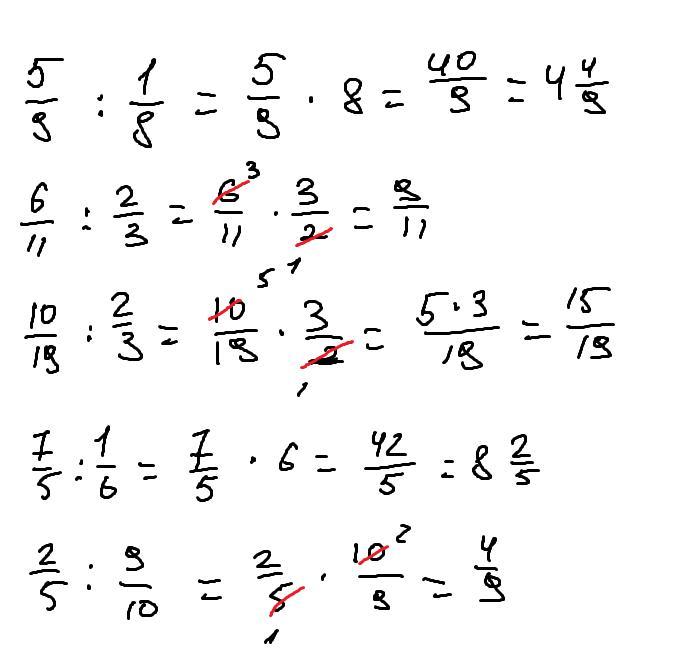 5/9 : 1/8 = 5/9 · 8 = 40/9 = 4 4/9
6/11 : 2/3 = 6/11 3 · 3/2 1 = 9/11
10/19 : 2/3 = 10/19 5 · 3/2 1 = 5·3/19 = 15/19
7/5 : 1/6 = 7/5 · 6 = 42/5 = 8 2/5
2/5 : 9/10 = 2/5 1 · 10/9 2 = 4/9